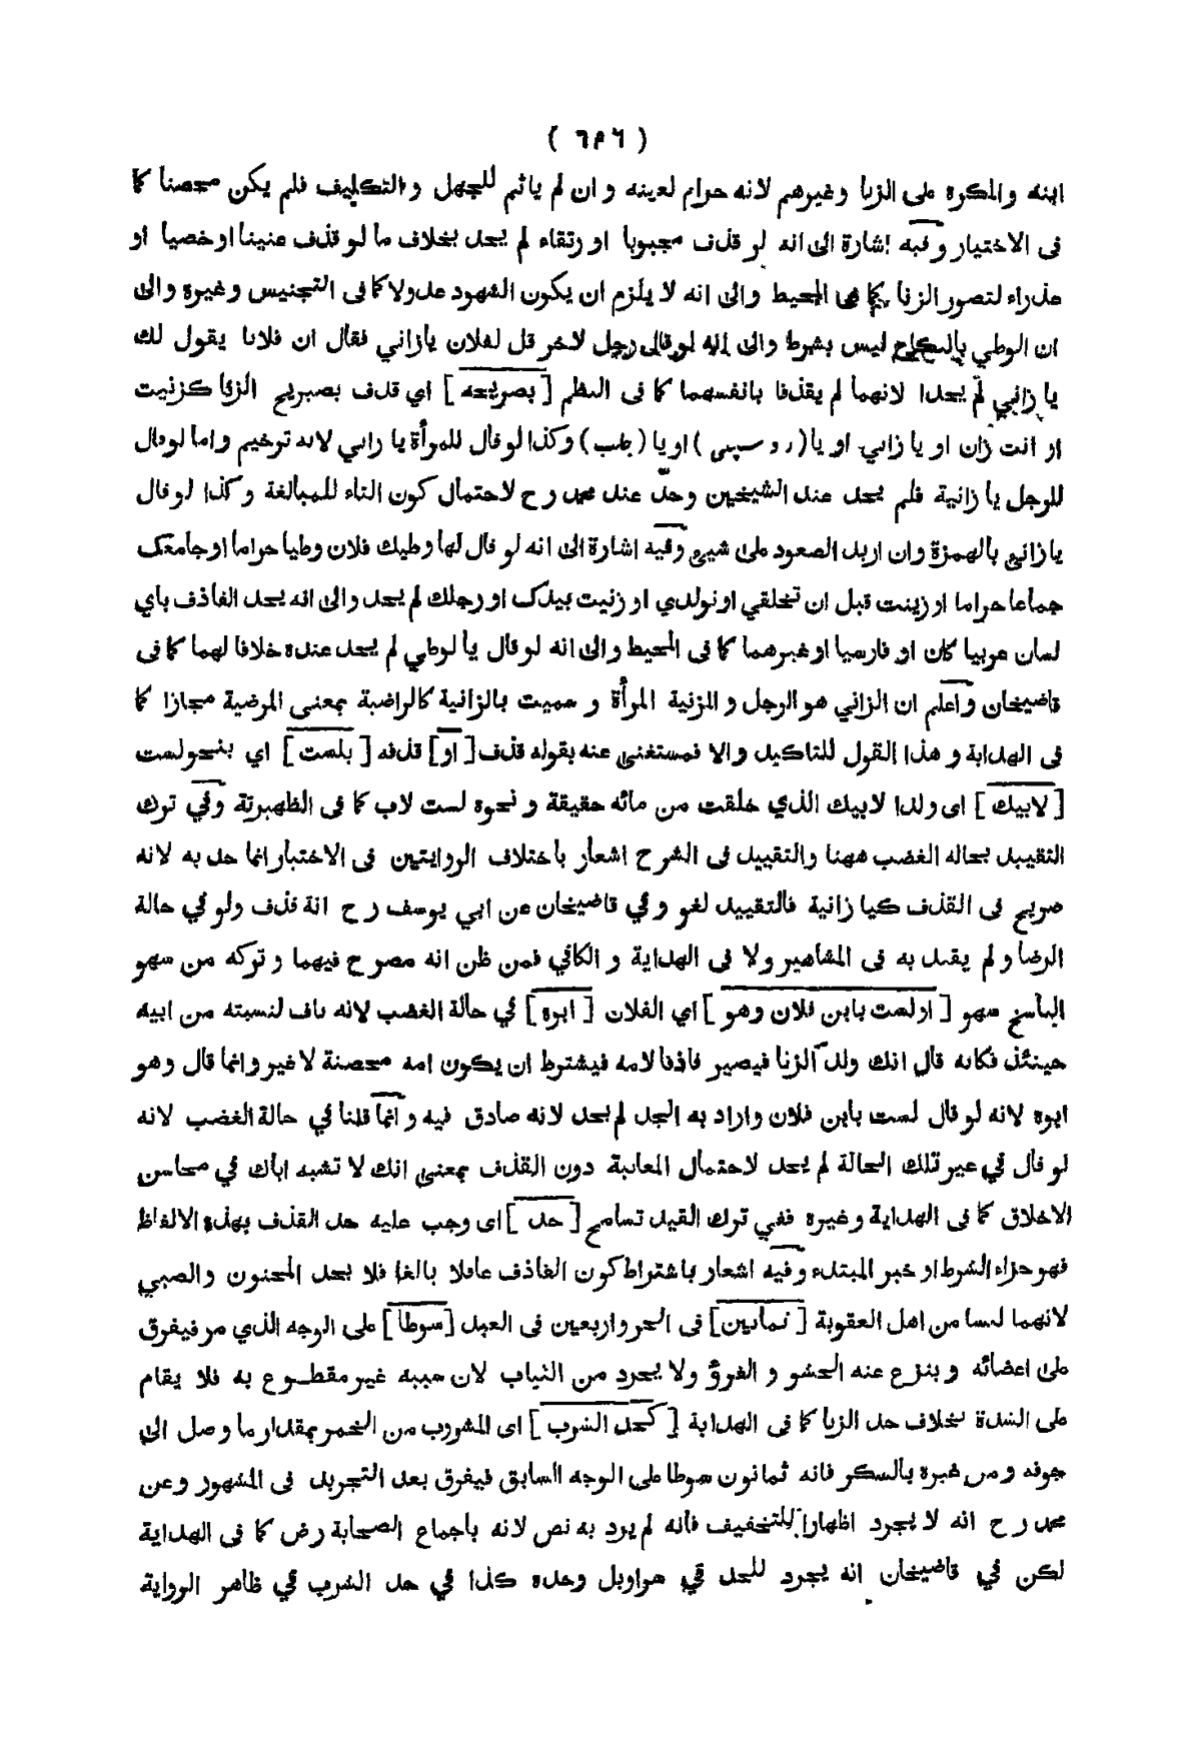 ( ٦٢٦ )
ابنه والمكره على الزنا وغيرهم لانه حرام لعينه وان لم ياثم للجهل والتكليف فلم يكن محصنا كا
فى الاختيار وفيه اشارة الى انه لو قذف مجبوبا او رتقاء لم يحد بخلاف ما لو قذف عنينا او خصيا او
عذراء لتصور الزنا كما فى المحيط والى انه لا يلزم ان يكون الشهود عدولا كا فى التجنيس وغيره والى
ان الوطي بالنكاح ليس بشرط والى انه لو قال رجل لاخر قل لفلان يازاني فقال ان فلانا يقول لك
يا زاني لم يحدا لانهما لم يقذفا بانفسهما كا فى النظم [ بصريحه ] اي قذف بصريح الزنا كزنيت
او انت زان او يا زاني او يا ( روسپى ) او يا ( جلب ) وكذا لو قال للمرأة يا زاني لانه ترخيم واما لو قال
للرجل يا زانية فلم يحد عند الشيخين وحدّ عند محمد رح لاحتمال كون التاء للمبالغة وكذا لو قال
يا زانئ بالهمزة وان اريد الصعود على شيئ وفيه اشارة الى انه لو قال لها وطيك فلان وطيا حراما او جامعك
جماعا حراما او زينت قبل ان تخلقي او تولدي او زنيت بيدك او رجلك لم يحد والى انه يحد القاذف باي
لسان عربيا كان او فارسيا او غيرهما كا فى المحيط والى انه لو قال يا لوطي لم يحد عنده خلافا لهما كا فى
قاضيخان واعلم ان الزاني هو الرجل و المزنية المرأة و سميت بالزانية كالراضية بمعنى المرضية مجازا كا
فى الهداية و هذا القول للتاكيد والا فمستغنى عنه بقوله قذف [ او ] قذفه [ بلست ] اي بنحو لست
[ لابيك ] اى ولدا لابيك الذي خلقت من مائه حقيقة و نحوه لست لاب كا فى الظهيرية وفي ترك
التقييد بحاله الغضب ههنا والتقييد فى الشرح اشعار باختلاف الروايتين فى الاختيار انما حد به لانه
صريح فى القذف كيا زانية فالتقييد لغو وفي قاضيخان عن ابي يوسف رح انه قذف ولو في حالة
الرضا ولم يقيد به فى المشاهير ولا فى الهداية و الكافي فمن ظن انه مصرح فيهما و تركه من سهو
الناسخ سهو [ او لست بابن فلان وهو ] اي الفلان [ ابوه ] في حالة الغضب لانه ناف لنسبته من ابيه
حينئذ فكانه قال انك ولد الزنا فيصير قاذفا لامه فيشترط ان يكون امه محصنة لا غير وانما قال وهو
ابوه لانه لو قال لست بابن فلان واراد به الجد لم يحد لانه صادق فيه وانما قلنا في حالة الغضب لانه
لو قال في غير تلك الحالة لم يحد لاحتمال المعاتبة دون القذف بمعنى انك لا تشبه اباك في محاسن
الاخلاق كا فى الهداية وغيره ففي ترك القيد تسامح [ حد ] اى وجب عليه حد القذف بهذه الالفاظ
فهو جزاء الشرط او خبر المبتداء وفيه اشعار باشتراط كون القاذف عاقلا بالغا فلا يحد المجنون والصبي
لانهما ليسا من اهل العقوبة [ ثمانين ] فى الحر واربعين فى العبد [ سوطا ] على الوجه الذي مر فيفرق
على اعضائه و ينزع عنه الحشو و الفرو ولا يجرد من الثياب لان سببه غير مقطوع به فلا يقام
على الشدة بخلاف حد الزنا كا فى الهداية [ كحد الشرب ] اى المشروب من الخمر بمقدار ما وصل الى
جوفه ومن غيره بالسكر فانه ثمانون سوطا على الوجه السابق فيفرق بعد التجريد فى المشهور وعن
محمد رح انه لا يجرد اظهارا للتخفيف فانه لم يرد به نص لانه باجماع الصحابة رض كا فى الهداية
لكن في قاضيخان انه يجرد للحد في سراويل وحده كذا في حد الشرب في ظاهر الرواية